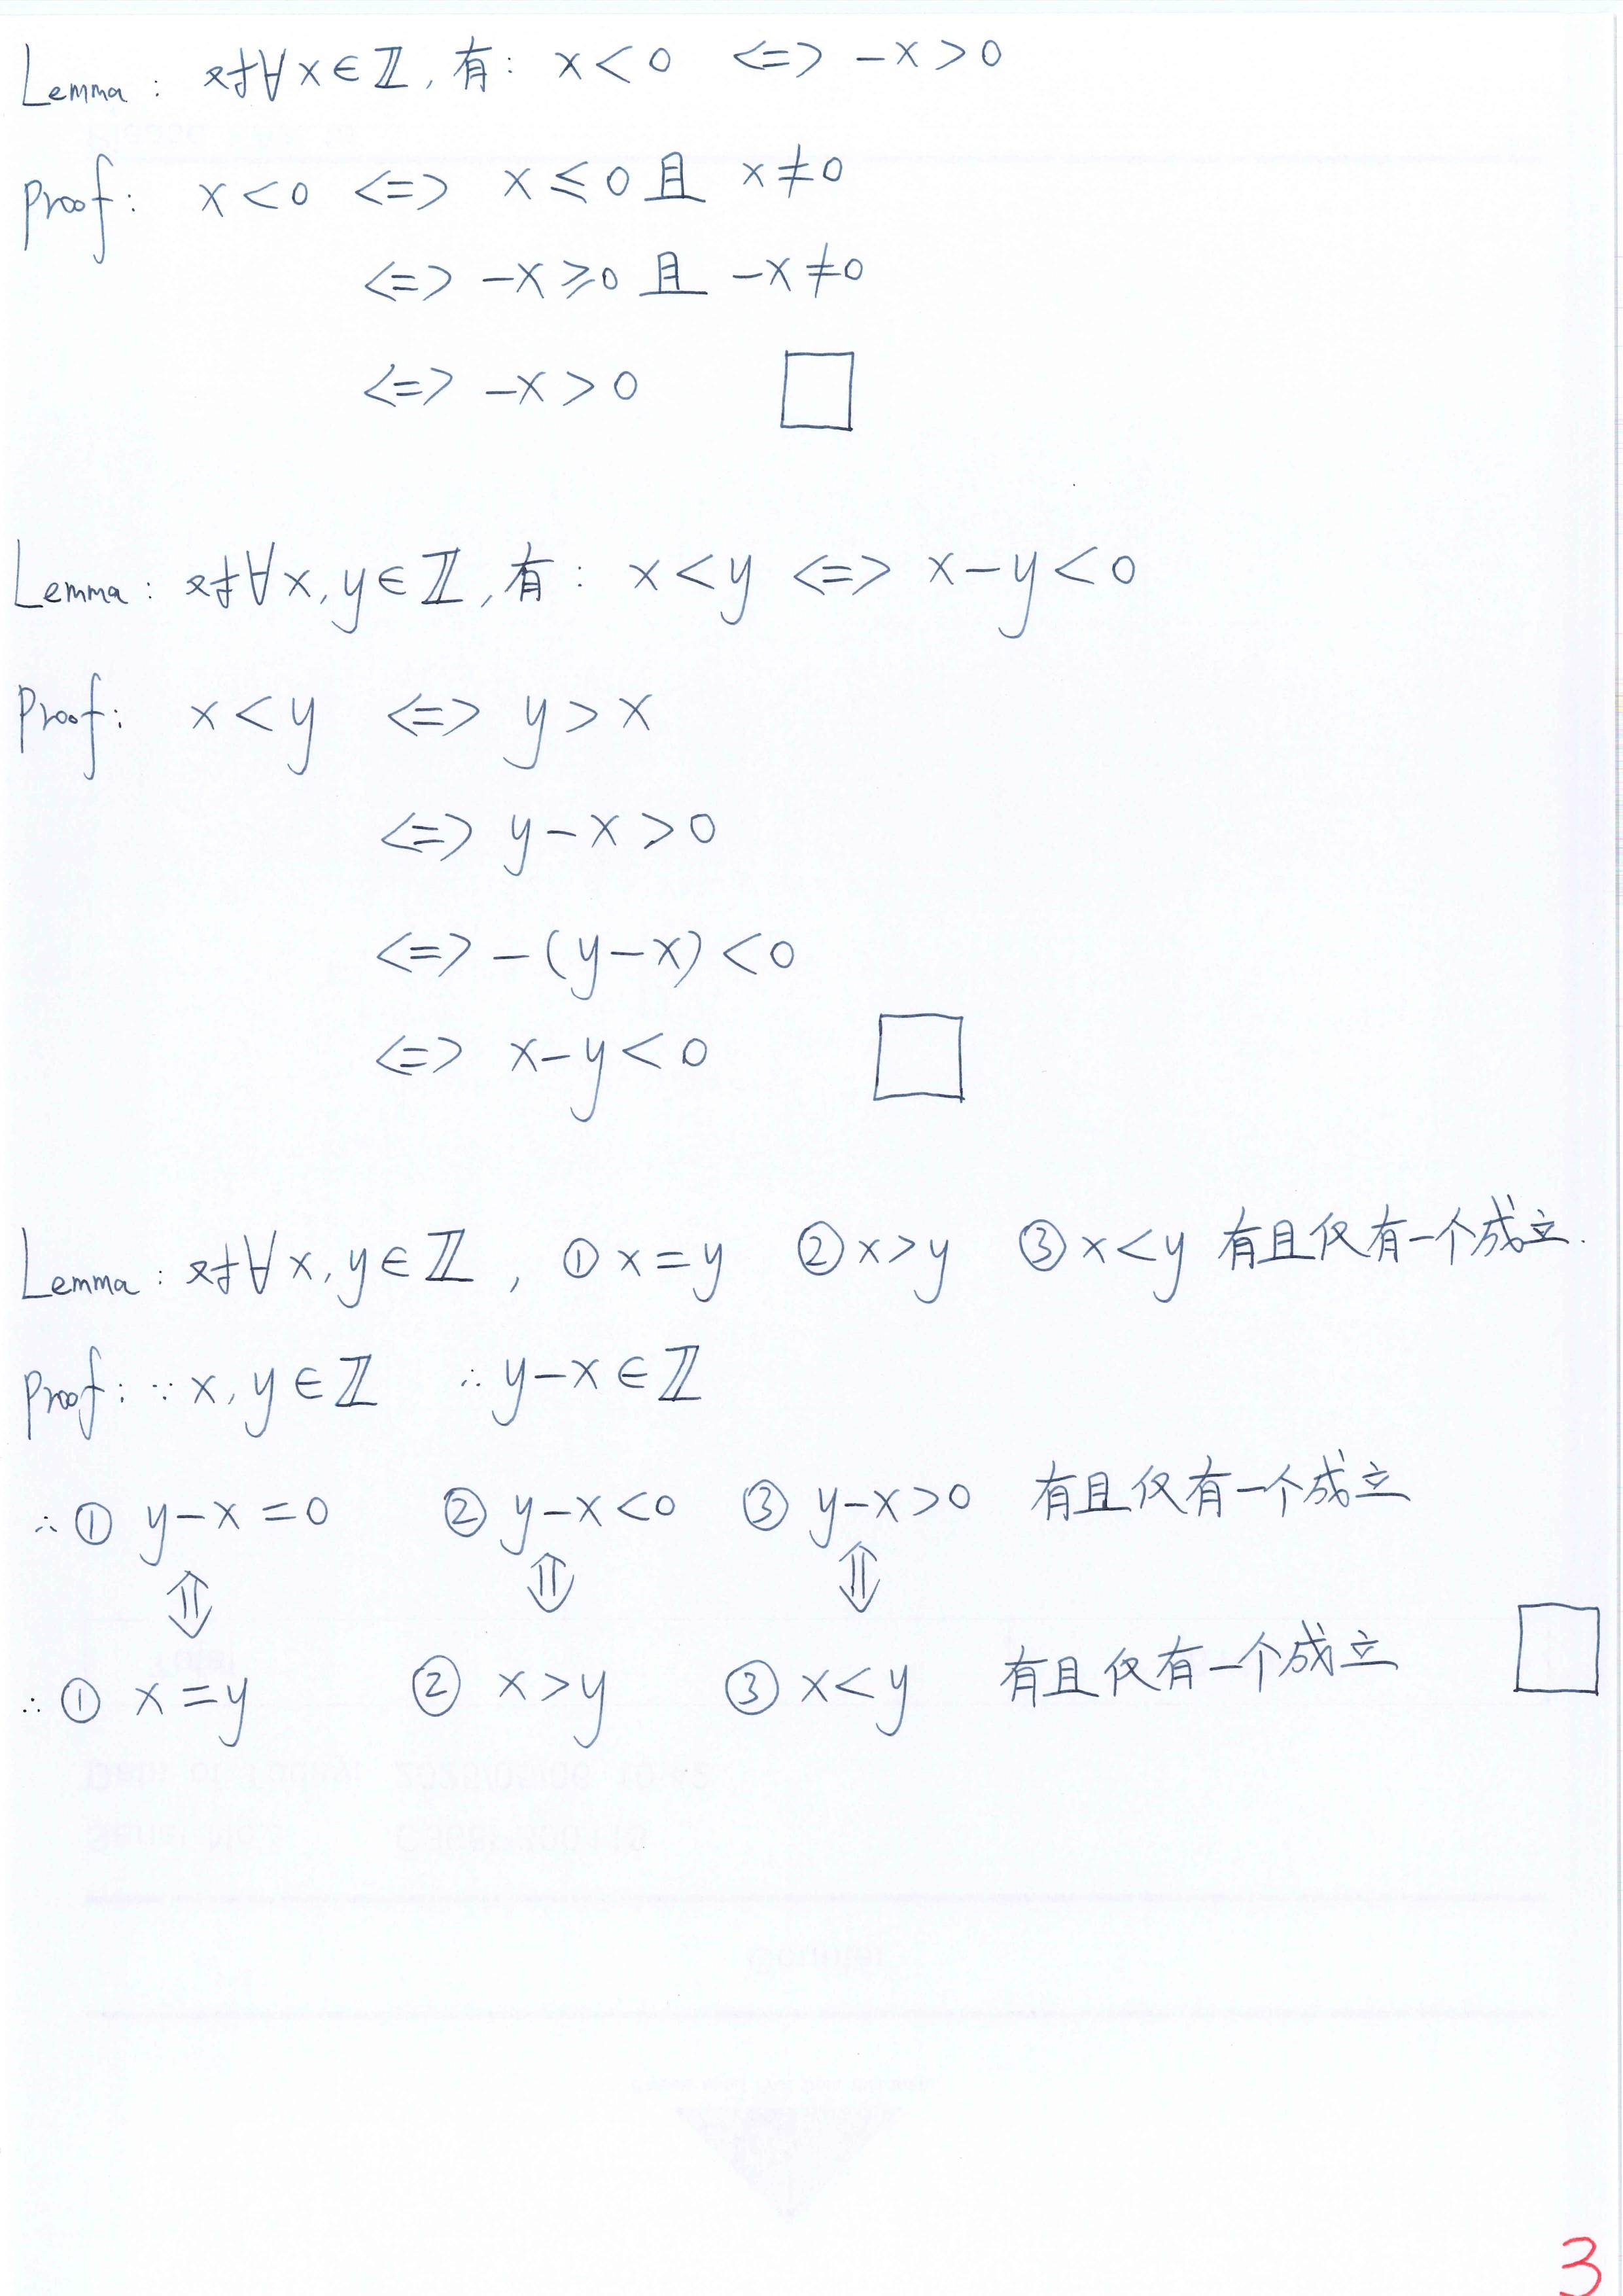 Lemma: 对∀x∈ℤ, 有: x<0 <=> -x>0
Proof: x<0 <=> x≤0 且 x≠0
<=> -x≥0 且 -x≠0
<=> -x>0 □
Lemma: 对∀x,y∈ℤ, 有: x<y <=> x-y<0
Proof: x<y <=> y>x
<=> y-x>0
<=> -(y-x)<0
<=> x-y<0 □
Lemma: 对∀x,y∈ℤ, ① x=y ② x>y ③ x<y 有且仅有一个成立.
Proof: ∵ x,y∈ℤ ∴ y-x∈ℤ
∴ ① y-x=0 ② y-x<0 ③ y-x>0 有且仅有一个成立
⇕ ⇕ ⇕
∴ ① x=y ② x>y ③ x<y 有且仅有一个成立 □
3